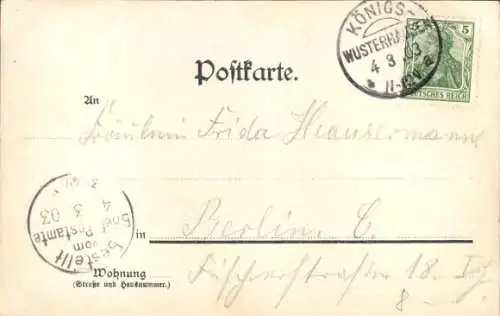 KÖNIGS-
WUSTERHAUSEN
4 3 03
11-12 V. a
5
DEUTSCHES REICH
Postkarte.
An
Fräulein Frida Heausermann
Bestellt
vom
Brief Postamte
4 3 03
in Berlin. C.
Wohnung Fischerstraßer 18. I
(Straße und Hausnummer.)
8